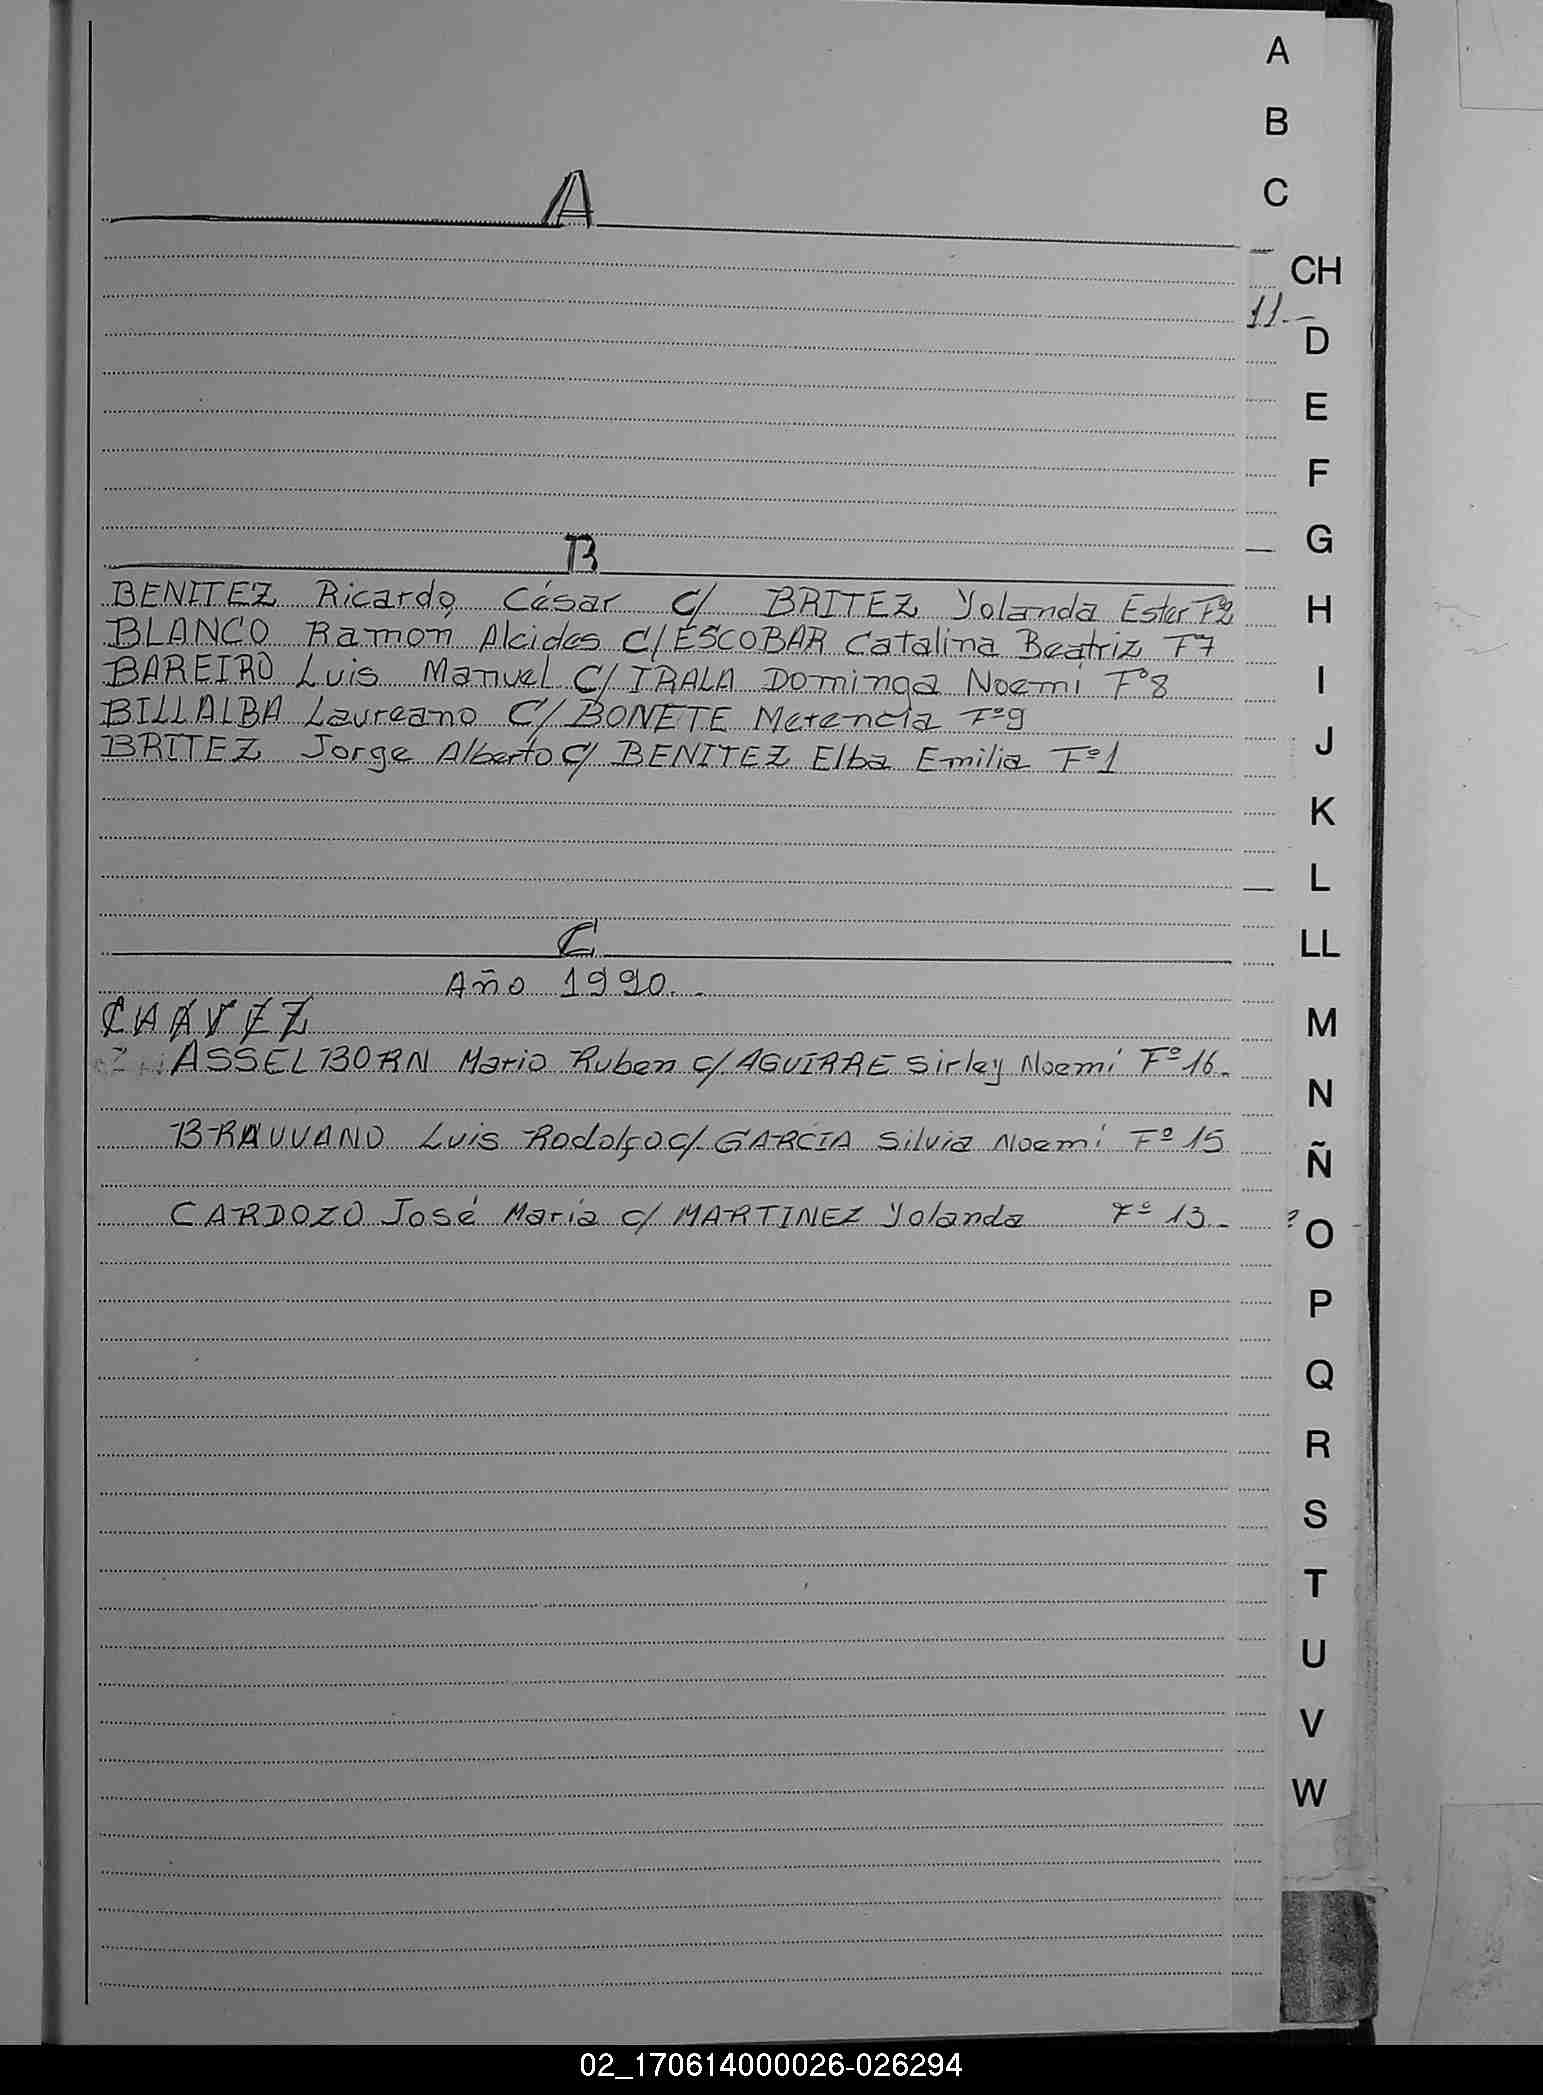 A
B
C
CH
D
E
F
G
H
I
J
K
L
LL
M
N
Ñ
O
P
Q
R
S
T
U
V
W
11.-
A
B
BENITEZ Ricardo César C/ BRITEZ Yolanda Ester Fº2
BLANCO Ramon Alcides C/ ESCOBAR Catalina Beatriz F7
BAREIRO Luis Manuel C/ IRALA Dominga Noemi Fº8
BILLALBA Laureano C/ BONETE Merencia Fº9
BRITEZ Jorge Alberto C/ BENITEZ Elba Emilia Fº1
C
Año 1990.-
CHAVEZ
ASSELBORN Mario Ruben c/ AGUIRRE Sirley Noemí Fº 16.
BRAUVANO Luis Rodolfo c/ GARCIA Silvia Noemí Fº 15
CARDOZO José María c/ MARTINEZ Yolanda Fº 13.-
02_170614000026-026294